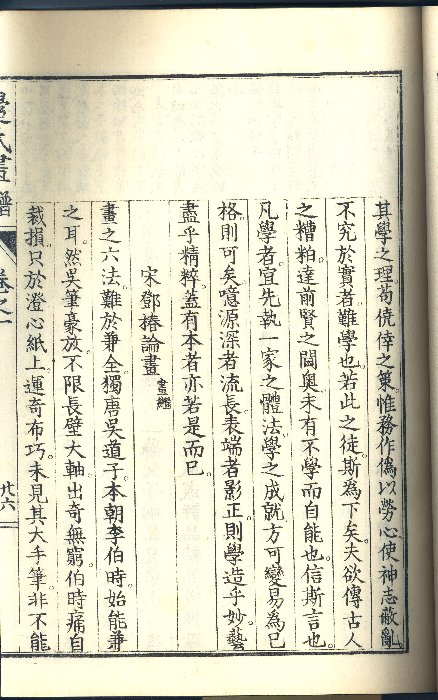 其學之理苟僥倖之策惟務作偽以勞心使神志蔽亂
不究於實者難學也若此之徒斯為下矣夫欲傳古人
之糟粕達前賢之閫奧未有不學而自能也信斯言也
凡學者宜先執一家之體法學之成就方可變易為已
格則可矣噫源深者流長表端者影正則學造乎妙藝
盡乎精粹蓋有本者亦若是而已
宋鄧椿論畫畫繼
畫之六法難於兼全獨唐吳道子本朝李伯時始能兼
之耳然吳筆豪放不限長壁大軸出奇無窮伯時痛自
裁損只於澄心紙上運奇布巧未見其大手筆非不能
氏畫譜
卷之一
廿六